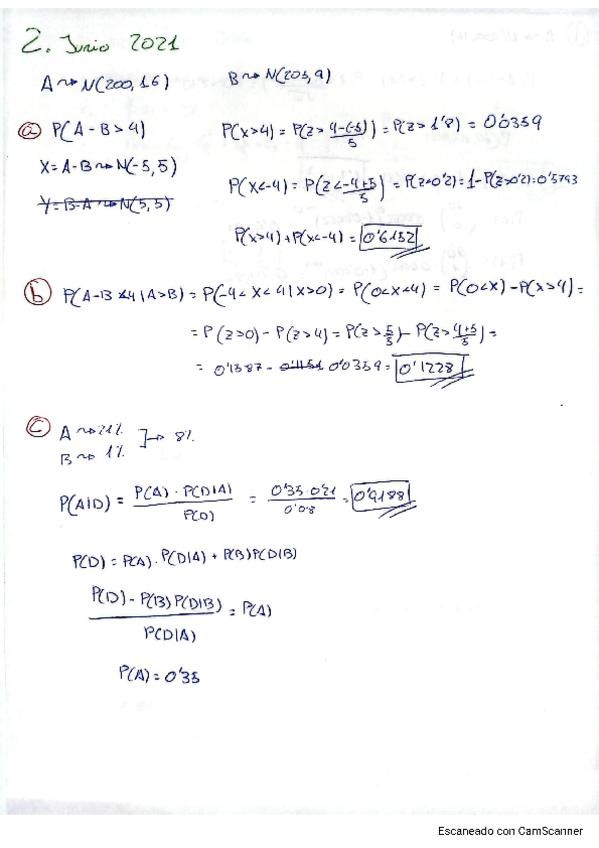 2. Junio 2021
A ~> N(200, 16)    B ~> N(205, 9)
ⓐ P(A - B > 4)    P(x>4) = P(z > 4-(-5)/5) = P(z > 1'8) = 0'0359
X = A-B ~> N(-5, 5)
Y = B-A ~> N(5, 5)    P(x<-4) = P(z < -4+5/5) = P(z<0'2) = 1-P(z>0'2) = 0'5793
P(x>4) + P(x<-4) = 0'6152
ⓑ P(A-B < 4 | A>B) = P(-4 < x < 4 | x>0) = P(0<x<4) = P(0<x) - P(x>4) =
= P(z>0) - P(z>4) = P(z > 5/5) - P(z > 4+5/5) =
= 0'1587 - 0'0359 = 0'1228
ⓒ A ~> 21%
B ~> 1%    ]-> 8%
P(A|D) = P(A) · P(D|A) / P(D) = 0'35 · 0'21 / 0'08 = 0'9188
P(D) = P(A) · P(D|A) + P(B)P(D|B)
P(D) - P(B)P(D|B) / P(D|A) = P(A)
P(A) = 0'35
Escaneado con CamScanner